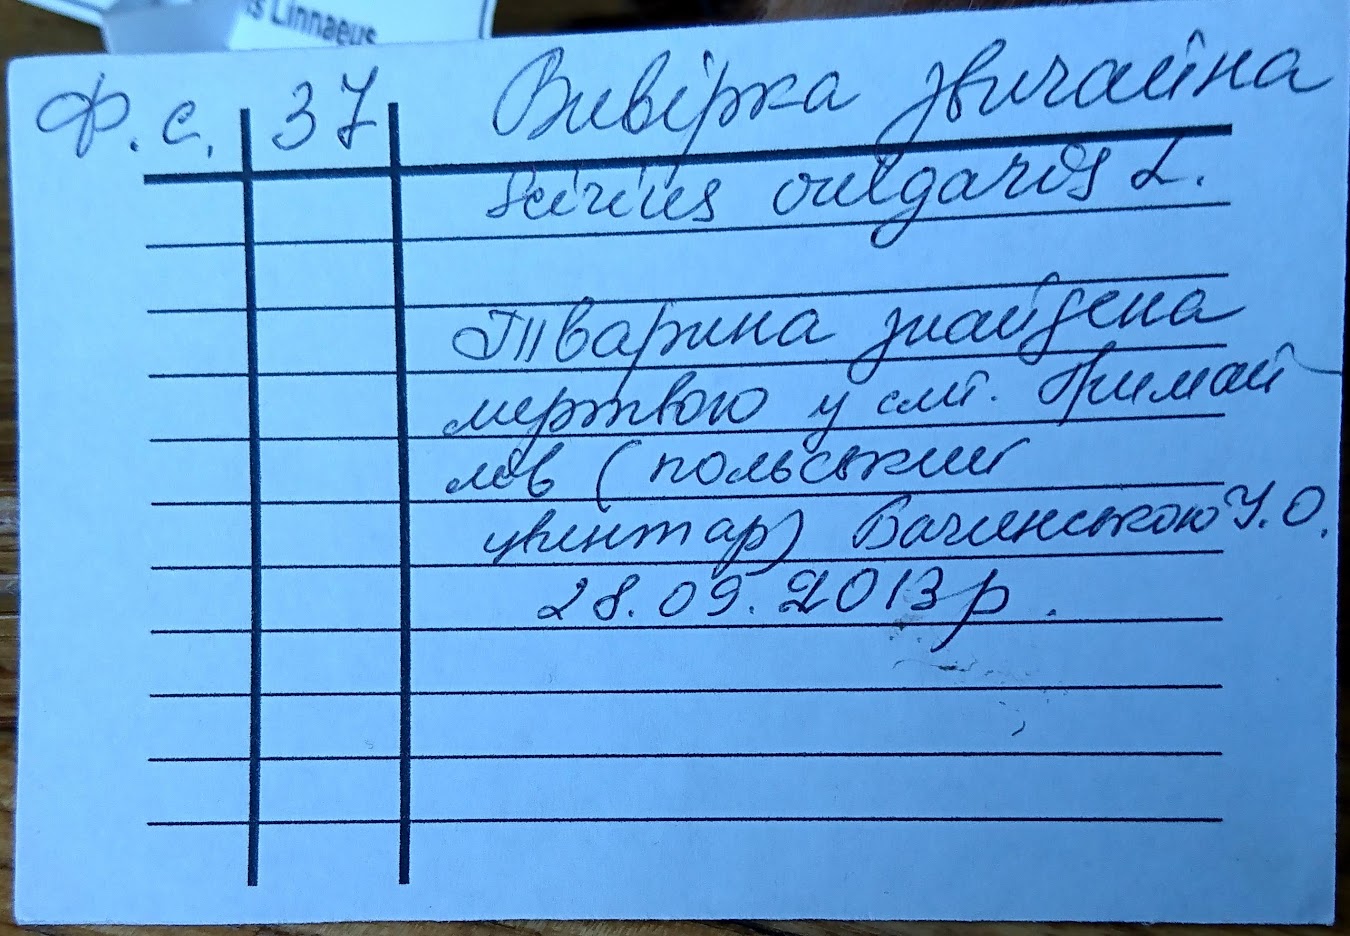 is Linnaeus
Ф. с. 37 Вивірка звичайна
Scirius vulgaris L.
Тварина знайдена
мертвою у смт. Гримай
лов (польський
цвинтар) Бачинською У. О.
28.09.2013 р.